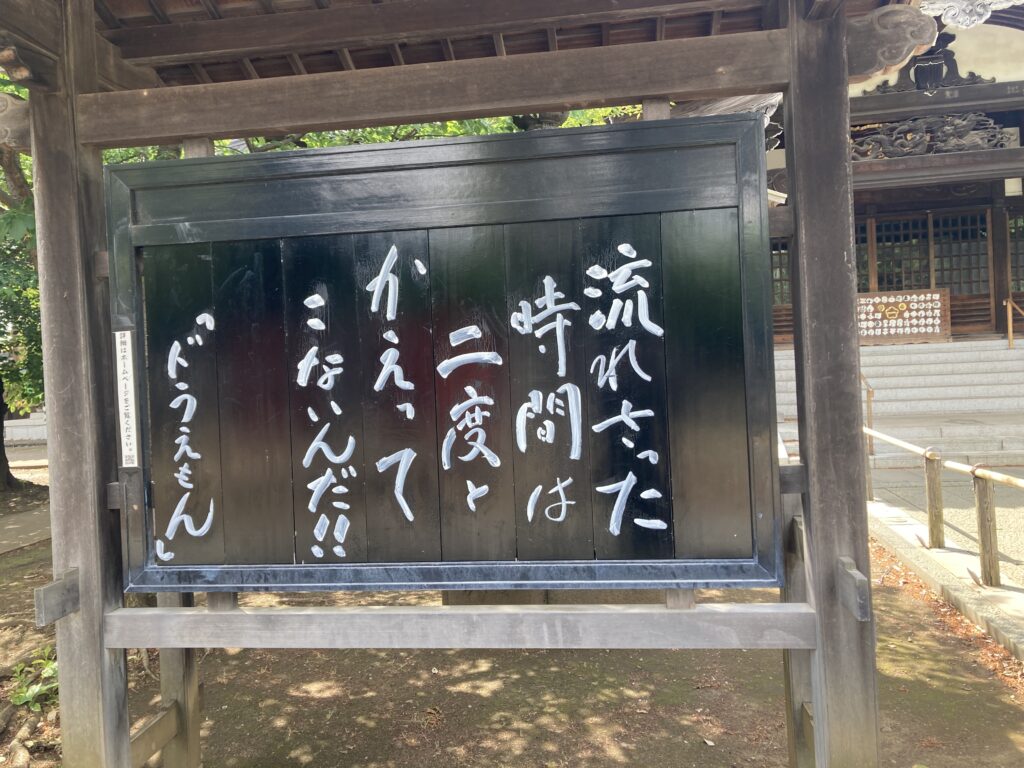 流れさった
時間は
二度と
かえって
こないんだ!!
「ドラえもん」
詳細はホームページをご覧ください。